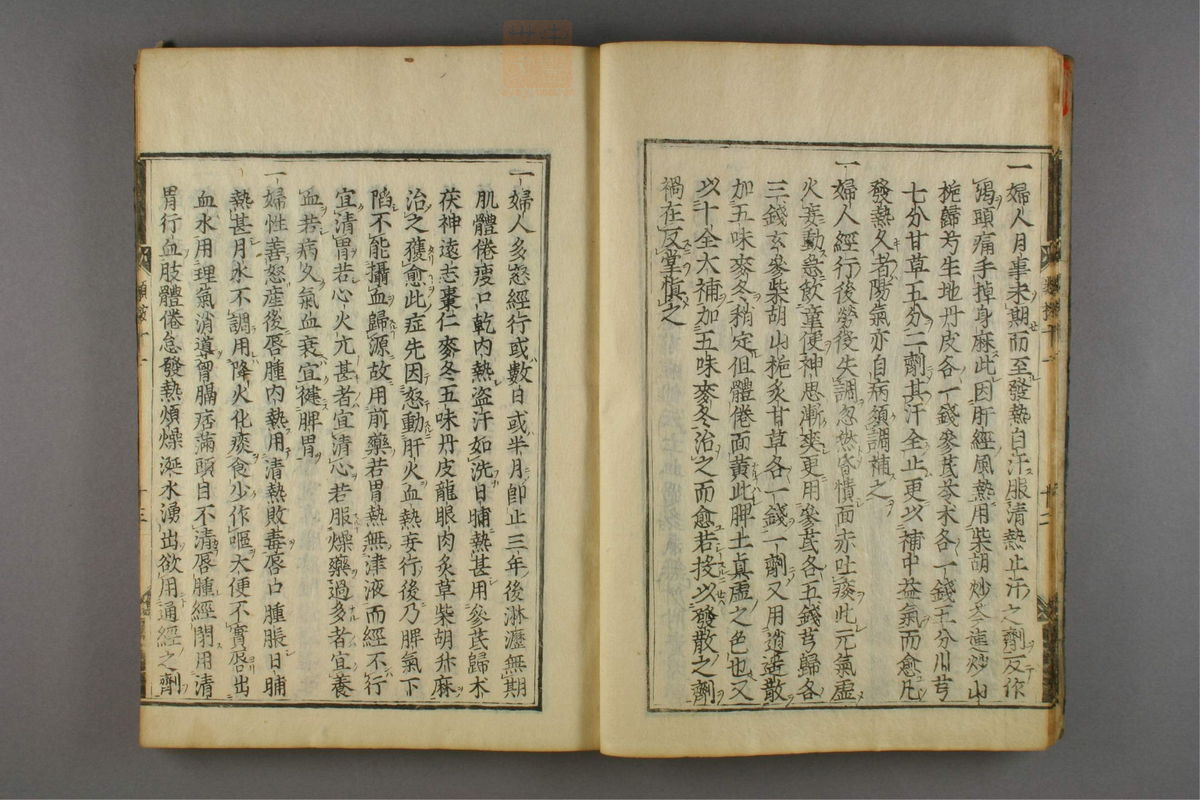 一婦人月事未期而至發熱自汗服清熱止汗之劑反作
渴頭痛手掉身麻此因肝經風熱用柴胡炒芩連炒山
梔歸芍生地丹皮各一錢參芪苓朮各一錢五分川芎
七分甘草五分二劑其汗全止更以補中益氣而愈凡
發熱久者陽氣亦自病須調補之
一婦人經行後勞役失調忽然昏憒面赤吐痰此元氣虛
火妄動急飲童便神思漸爽更用參芪各五錢芎歸各
三錢玄參柴胡山梔炙甘草各一錢一劑又用逍遥散
加五味麥冬稍定但體倦面黄此脾土真虛之色也又
以十全大補加五味麥冬治之而愈若投以發散之劑
禍在反掌慎之
一婦人多怒經行或數日或半月即止三年後淋瀝無期
肌體倦瘦口乾內熱盗汗如洗日晡熱甚用參芪歸朮
茯神遠志棗仁麥冬五味丹皮龍眼肉炙草柴胡升麻
治之獲愈此症先因怒動肝火血熱妄行後乃脾氣下
陷不能攝血歸源故用前藥若胃熱無津液而經不行
宜清胃若心火亢甚者宜清心若服燥藥過多者宜養
血若病久氣血衰宜健脾胃
一婦性善怒産後唇腫內熱用清熱敗毒唇口腫脹日晡
熱甚月水不調用降火化痰食少作嘔大便不實唇出
血水用理氣消導胷膈痞滿頭目不清唇腫經閉用清
胃行血肢體倦怠發熱煩燥涎水湧出欲用通經之劑
類案十一
十三